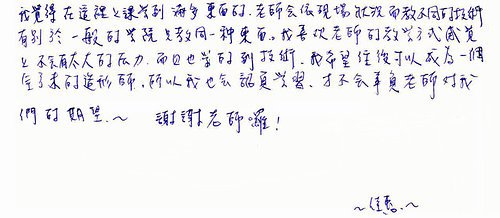 我覺得在這裡上課學到滿多東西的.老師會依現場狀況而教不同的技術
有別於一般的學院只教同一種東西.我喜歡老師的教學方式感覺
上不會有太大的壓力.而且也學的到技術.我希望往後可以成為一個
全方未的造形師,所以我也會認真學習.才不會辜負老師對我
們的期望.~ 謝謝老師囉!
~佳